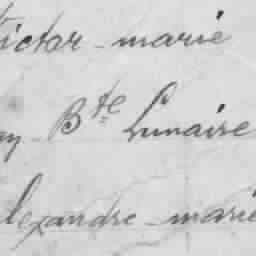 Victor - marie
Bte Lunaire
Alexandre - marie